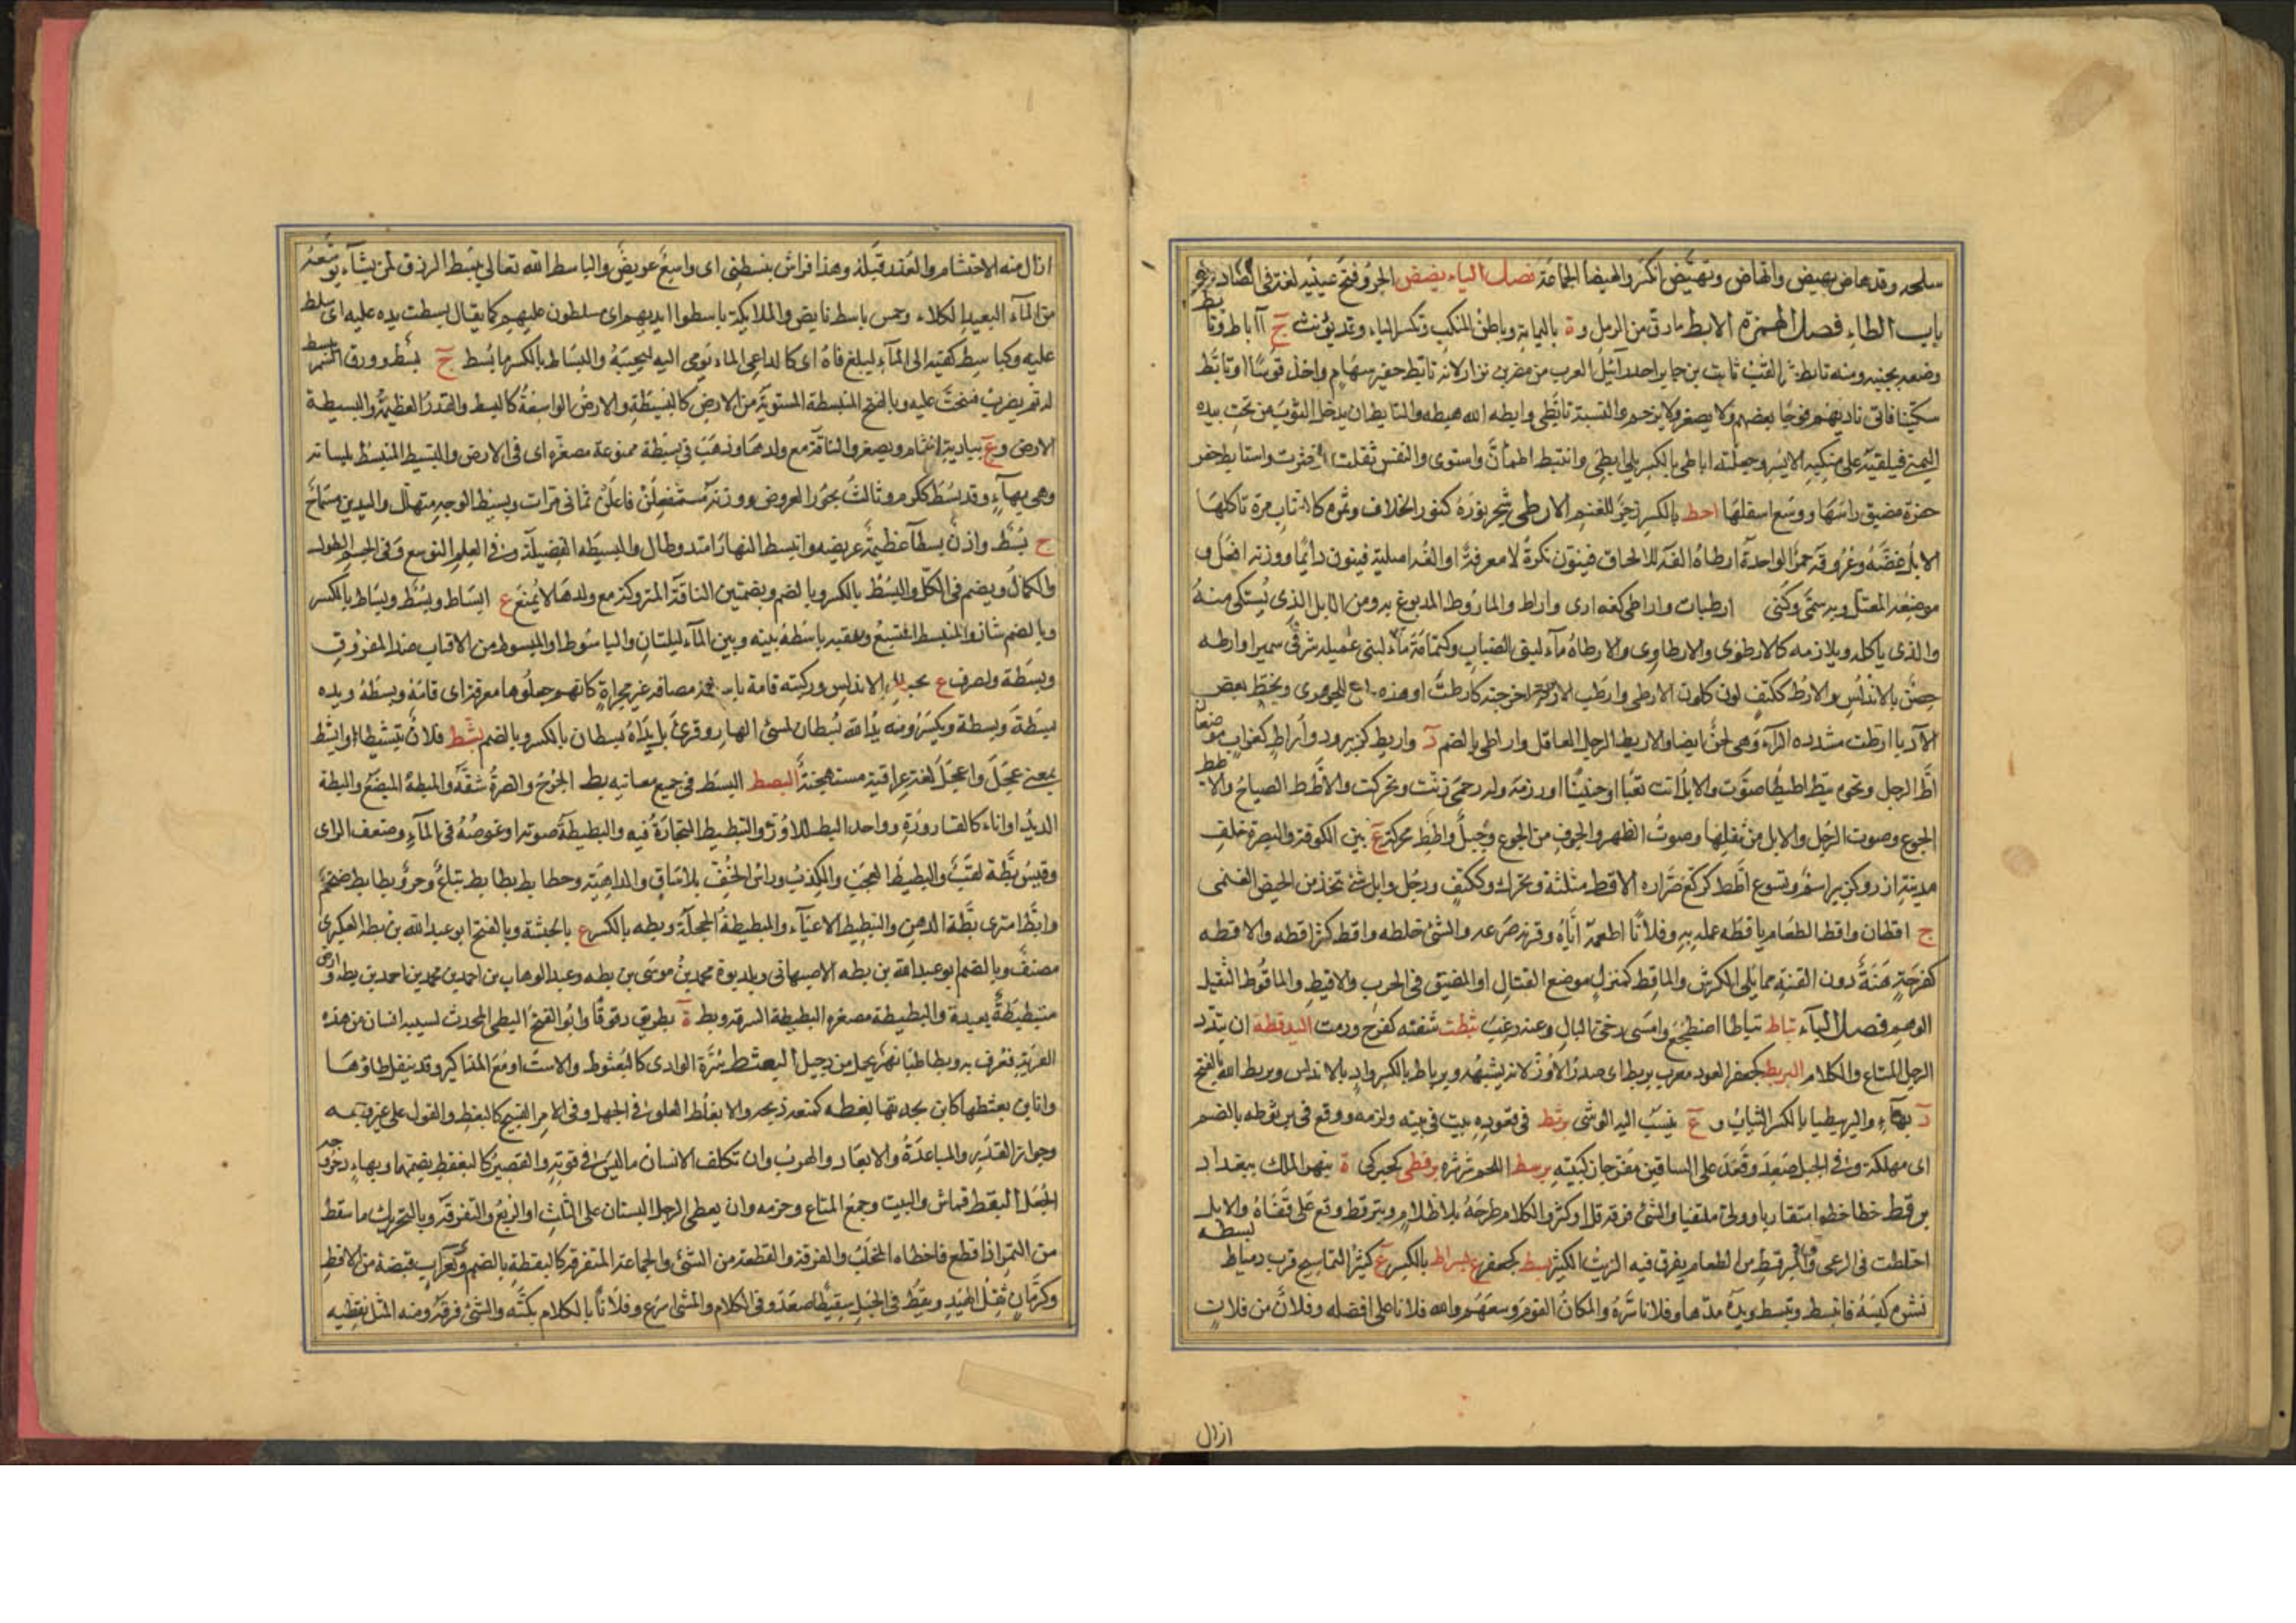 سلحه وقد هاض يهيض وانهاض وتهيض انكسر والهيضا الجماعة فصل الياء يضض الجرو فتح عينيه لغة في الصاد
باب الطاء فصل الهمزة الابط مارق من الرمل وة باليمامة وباطن المنكب وتكسر الباء وقد يؤنث ج آباط وتأبطه
وضعه بجنبه ومنه تابط شرا لقب ثابت بن جابر احد رآبيل العرب من مضر بن نزار لانه تابط جفير سهام واخذ قوسا او تابط
سكينا فاتى ناديهم فوجا بعضهم ولا يصغر ولا يرخم والنسبة تابطى وابطه الله هبطه والتابط ان يدخل الثوب من تحت يده
اليمنى فيلقيه على منكبه الايسر وجعلته اباطى بالكسر يلى ابطى وائتبط اطمأن واستوى والنفس ثقلت وخثرت واستابط حفر
حفرة ضيق راسها ووسع اسفلها احط بالكسر زجر للغنم الارطى شجر نوره كنور الخلاف وثمره كالعناب مرة تاكلها
الابل غضة وعروقه حمر الواحدة ارطاة الفه للالحاق فينون نكرة لا معرفة او الفه اصلية فينون دائما ووزنه افعل و
موضعه المعتل وبه سمى وكنى ارطيات واراطى كعذارى واراط والماروط المدبوغ به ومن الابل الذى يشتكى منه
والذى ياكله ويلازمه كالارطوى والارطاوى والارطاة مآء لبنى الضباب وكثمامة مآء لبنى عميله شرقى سميرا وارطه
حصن بالاندلس والارط ككتف لون كلون الارطى وارطت الارض اخرجته كارطت او هذه للجوهرى وبخط بعض
الادبا ارطت مشدده الرآء وهى لحن ايضا والاريط الرجل العاقر واراطى بالضم د واريط كزبير ود واراط كغراب موضعان
اط الرجل ونحوه يئط اطيطا صوت والابل انت تعبا او حنينا او رزمة وله رحمى رقت وتحركت والاطط الصياح والاطيط
الجوع وصوت الرحل والابل من ثقلها وصوت الظهر والجوف من الجوع وجبل واطط محركة ع بين الكوفة والبصرة خلف
مدينة ازر وكزبير اسم ونسوع اطط كركع صرارة الاقط مثلثة ويحرك وككتف ورجل وابل شئ يتخذ من المخيض الغنمى
ج اقطان واقط الطعام ياقطه عمله به وفلانا اطعمه اياه وقرنه صرعه والشئ خلطه واقط كثر اقطه والاقطه
كفرحة هنة دون القبة مما يلى الكرش والماقط كمنزل موضع القتال او المضيق فى الحرب والاقيط والماقوط الثقيل
الوخم فصل البآء تباط تباطا اضطجع وامسى رخى البال وعنه رغب ثبطت شفته كفرح ورمت البذقطة ان يبدد
الرجل المتاع والكلام البربط كجعفر العود معرب بربط اى صدر الاوز لانه يشبهه وبرباط بالكسر واد بالاندلس وبربطانيه بالفتح
د بهآء والبربيطيا بالكسر الثياب و ع ينسب اليه الوشى برثط فى قعوده ثبت فى بيته ولزمه ووقع فى برثوطه بالضم
اى مهلكة وبرقط فى الجبل صعد وقعد على الساقين مفرجا ركبتيه برسط اللحم شرشره برقطى كحبركى ة بنهر الملك ببغداد
برقط خطا خطوا متقاربا وولى متلفتا والشئ فرقه قل او كثر والكلام طرحه بلا نظام وتبرقط وقع على قفاه والابل
اختلطت فى الرعى والمبرقط من الطعام يفرق فيه الزيت الكثير بسط كجعفر ع بسراط بالكسر ع كثير التماسيح قرب دمياط
بسطه نشره كبسّطه فانبسط وتبسط ويده مدها وفلانا سره والمكان القوم وسعهم والله فلانا على افضله وفلان من فلان
ازال
ازال منه الاحتشام والعذر قبله وهذا فراش يبسطنى اى واسع عريض والباسط الله تعالى يبسط الرزق لمن يشآء يوسعه
من المآء البعيد الكلاء وخمس باسط نايض والملائكة باسطوا ايديهم اى مسلطون عليهم كما يقال بسطت يده عليه اى سلط
عليه وكباسط كفيه الى المآء ليبلغ فاه اى كالداعى الماء يومى اليه ليجيبه والبساط بالكسر ما بسط ج بسط وورق السمر يبسط
له ثم يضرب فينحت عليه وبالفتح المنبسطة المستوية من الارض كالبسيطة والارض الواسعة كالبسط والقدر العظيمة والبسيطة
الارض وع ببادية الشام ويصغر والناقة مع ولدها وذهب فى بسيطة ممنوعة مصغرة اى فى الارض والبسيط المنبسط بلسانه
وهى بهآء وقد بسط ككرم وثالث بحور العروض ووزنه مستفعلن فاعلن ثمانى مرات وبسيط الوجه متهلل واليدين مسماح
ج بسط واذن بسطآء عظيمة عريضه وانبسط النهار امتد وطال والبسطه الفضيلة وفى العلم التوسع وفى الجسم الطول
والكمال ويضم فى الكل والبسط بالكسر وبالضم وبضمتين الناقة المتروكة مع ولدها لا يمنع ع ابساط وبسط وبساط بالكسر
وبالضم شاذ والمنبسط المتسع وعقبه باسطة بينه وبين المآء ليلتان والباسوط او المبسوط من الاقتاب ضد المفروق
وبسطة ويصرف ع بجيان الاندلس وركبته قامة باسطة مضافة غير مجراة كانهم جعلوها معرفة اى قامة وبسطة ويده
بسطة وبسطة ويكسر ومنه يد الله بسطان لمسئ النهار وقرئ بل يداه بسطان بالكسر وبالضم بشط فلان تبشيطا او ابشط
بمعنى عجل واعجل لغة عراقية مستهجنة البصط البسط فى جميع معانيه بط الجرح والصرة شقه والمبطة المبضع والبطة
الدبة او اناء كالقارورة وواحد البط للاوز والتبطيط التجارة فيه والبطبطة صوته او غوصه فى المآء وضعف الراى
وقيس بطة لقب والبطيط العجب والكذب وراس الخف بلا ساق والداهية وحطايط بطايط تباع وجرو بطايط ضخم
وابط اشترى بطة الدهن والتبطيط الاعيآء والمبطبطة المحجلة وبطه بالكسر ع بالحبشة وبالفتح ابو عبد الله بن بطه العكبرى
مصنف وبالضم ابو عبد الله بن بطه الاصبهانى وبلديوه محمد بن موسى بن بطه وعبد الوهاب بن احمد بن محمد بن احمد بن بطه وارض
متبطبطة بعيدة والبطيطة مصغره البطبطة السرقة وبط ة بطريق دقوقا وابو الفتح البطى المحدث نسيب انسان من هذه
القرية فعرف به وبطاطيا نهر يحمل من دجيل البعثط سرة الوادى كالبعثوط والاست او مع المذاكير وقد يثقل طاؤها
وانا ابن بعثطها كابن بجدتها بعطه كمنعه ذبحه والابعاط الغلو فى الجهل وفى الامر القبيح كالبعط والقول على غير وجهه
وجواز القدر والمباعدة والابعاد والهرب وان تكلف الانسان ما ليس فى قوته والقصير كالبعقط بضمهما وبهاء دحروجة
الجعل البقط قماش البيت وجمع المتاع وحزمه وان يعطى الرجل البستان على الثلث او الربع والتفرقة وبالتحريك ما سقط
من التمر اذا قطع فاخطاه المخلب والفرقة والقطعة من الشئ والجماعة المتفرقة كالبقطة بالضم وكغراب قبضة من الاقط
وكرمان ثفل الهبيد وبقط فى الجبل تبقيطا صعد وفى الكلام والمشى اسرع وفلانا بالكلام بكته والشئ فرقه ومنه المثل بقطيه